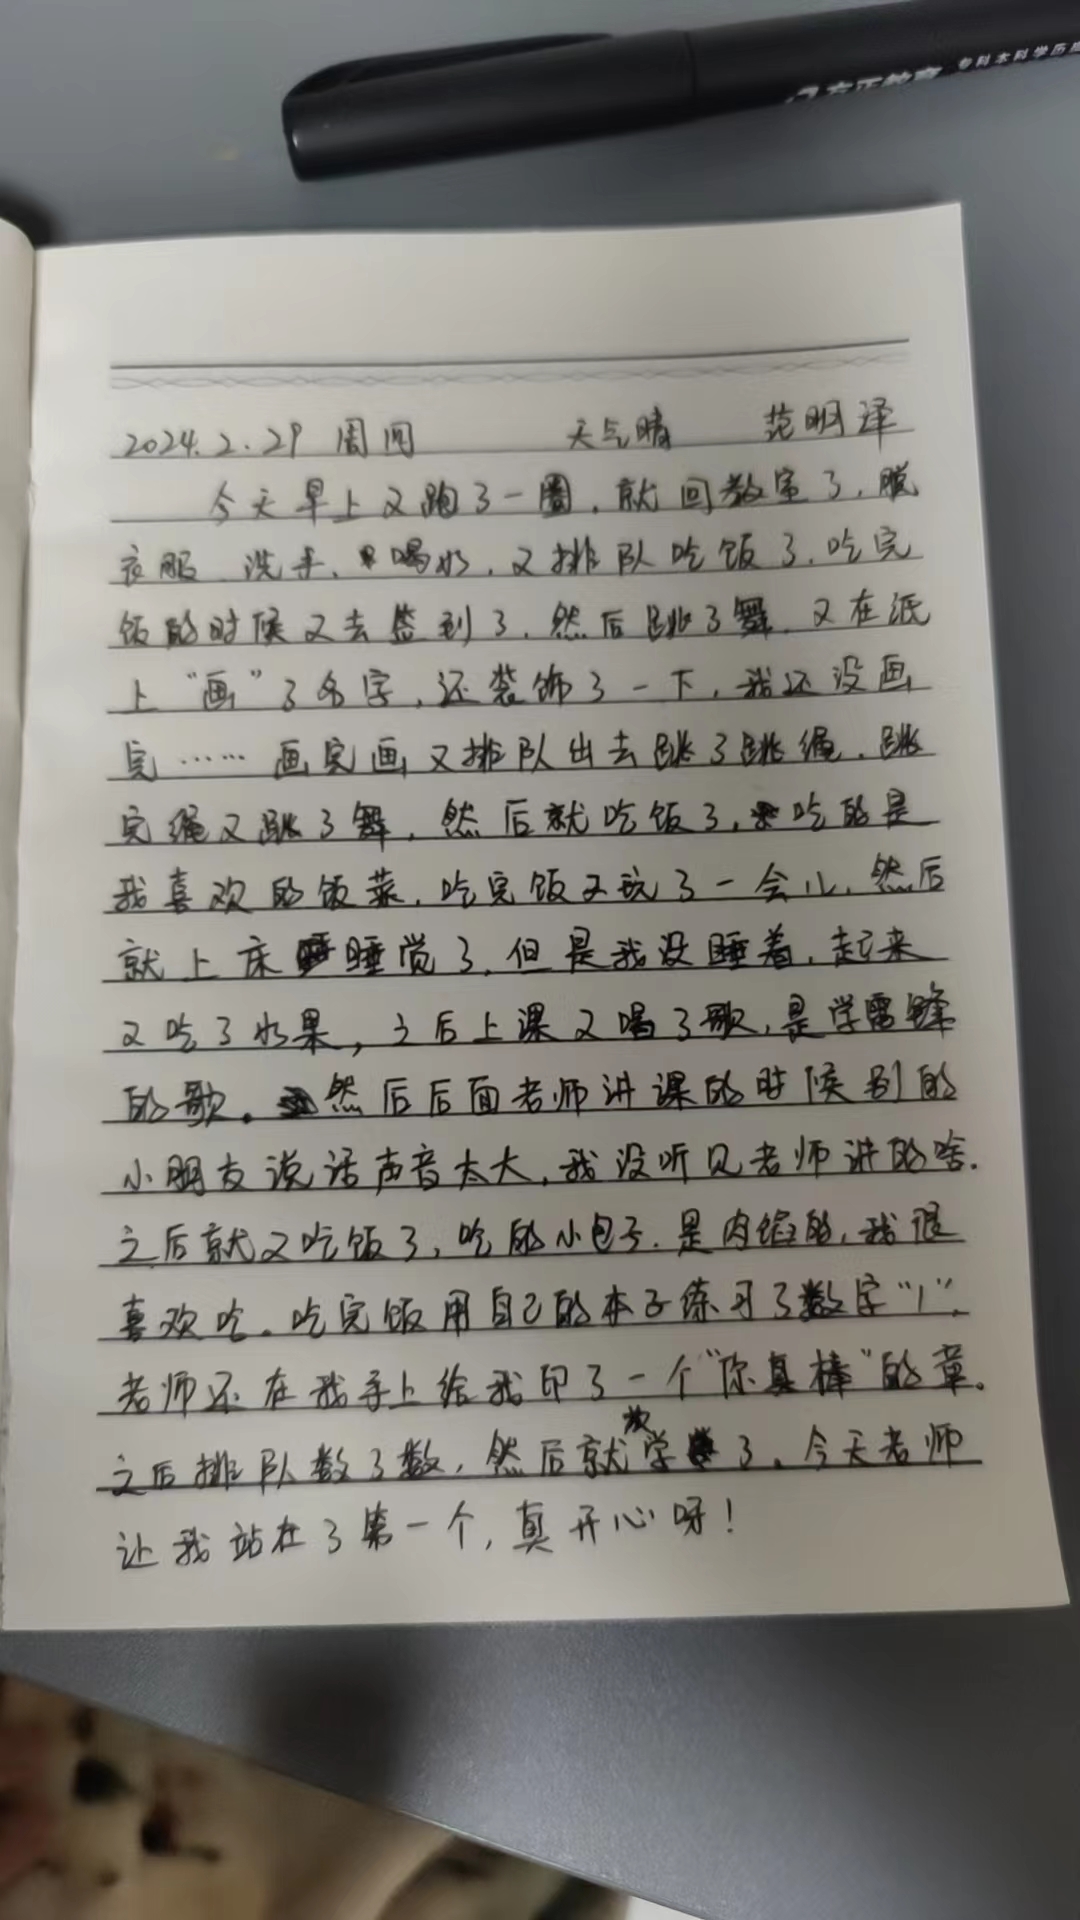 方正教育 专科本科学历
2024.2.29 周四 天气晴 范明泽
今天早上又跑了一圈，就回教室了，脱
衣服、洗手、喝水，又排队吃饭了，吃完
饭的时候又去签到了，然后跳了舞，又在纸
上“画”了名字，还装饰了一下，我还没画
完……画完画又排队出去跳了跳绳，跳
完绳又跳了舞，然后就吃饭了，吃的是
我喜欢的饭菜，吃完饭又玩了一会儿，然后
就上床睡觉了，但是我没睡着，起来
又吃了水果，之后上课又唱了歌，是学雷锋
的歌。然后后面老师讲课的时候别的
小朋友说话声音太大，我没听见老师讲的啥.
之后就又吃饭了，吃的小包子，是肉馅的，我很
喜欢吃。吃完饭用自己的本子练习了数字“1”，
老师还在我手上给我印了一个“你真棒”的章。
之后排队数了数，然后就放学了。今天老师
让我站在了第一个，真开心呀！